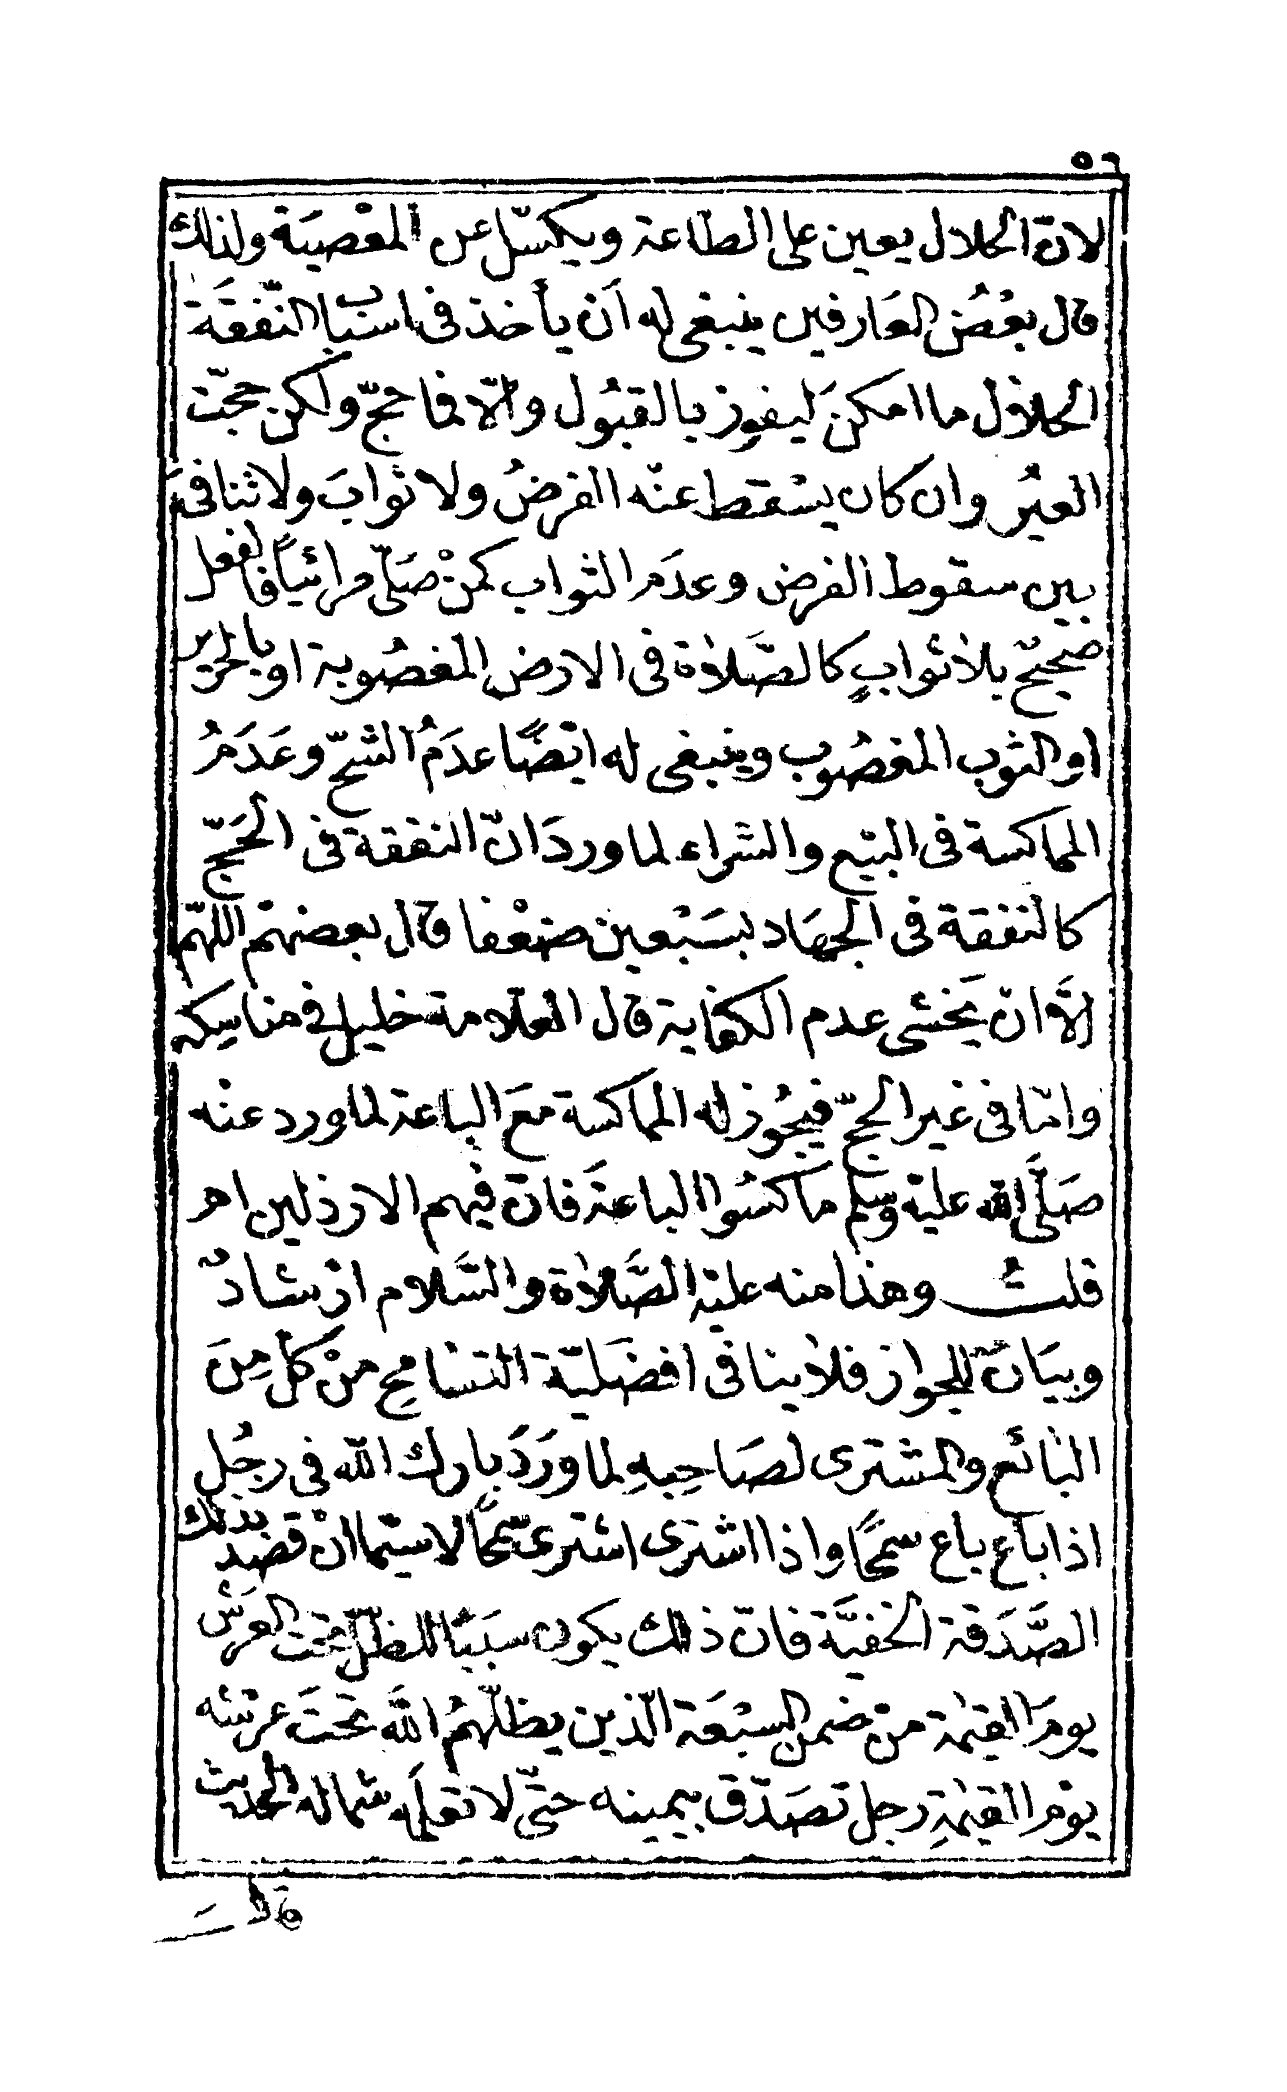 ٥٦
لانّ الحلال يعين على الطاعة ويكسّل عن المعْصيَة ولذلك
قال بعْضُ العَارفين ينبغى له اَن يأخذ فى اسبَاب النّفقَة
الحلال ما امكنَ ليفوز بالقبُول والّا فما حجّ ولكن حجّت
العيرُ وان كان يسْقط عنْه الفرضُ ولا ثوابَ ولا تنافىَ
بين سقوط الفرض وعدَم الثواب كمنْ صَلّى مرائيًا فالفعل
صحيحٌ بلا ثوابٍ كالصَّلاة فى الارض المغصُوبة او بالحرير
او الثوب المغصُوب وينبغى له ايْضًا عدَمُ الشحّ وعَدَمُ
المماكسة فى البيْع والشراء لما وردَ انّ النفقة فى الحَجّ
كالنفقة فى الجهَاد بسَبْعين ضعْفا قال بعضهمْ اللهمّ
الَّا ان يَخشى عدم الكفاية قال العلّامة خليل فى مناسِكه
وامّا فى غير الحجّ فيجُوز له المماكسة معَ الباعة لما ورد عنْه
صَلَّى الله عليْه وسلم ماكسُوا الباعَة فانّ فيهم الارذلين اهـ
قلتُ وهذا منه عليْه الصَّلاة والسَّلام ارْشادٌ
وبيَانٌ للجواز فلا ينافى افضَليّة التسَامحِ منْ كلّ مِنَ
البَائع والمشترى لصَاحِبهِ لما وَرَدَ بارك الله فى رجُل
اذا باع باع سمحًا واذا اشترى اشترى سَمحًا لا سيّما انْ قصَد بذلك
الصَّدَقة الخفيَّة فانّ ذلك يكون سبَبًا للظلّ تحت العرَش
يومَ القيٰمة منْ ضمن السبْعَة الّذين يظلّهمُ اللهَ تحْتَ عرْشه
يوْم القيٰمةِ رجل تصَدّق بيمينه حتّى لا تعْلَم شماله الحديث